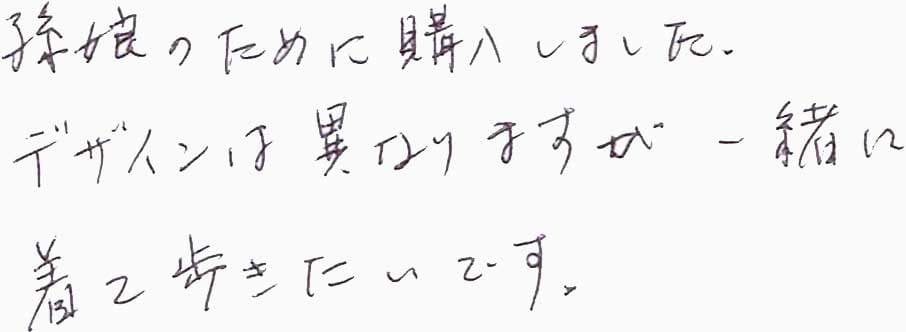 孫娘のために購入しました.
デザインは異なりますが一緒に
着て歩きたいです。